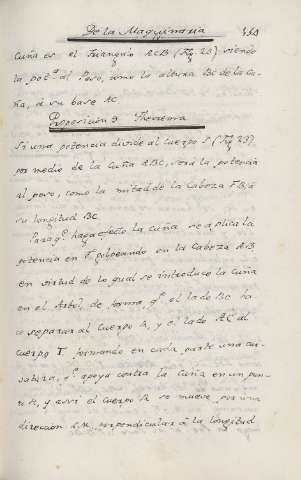 De la Maquinaria
Cuña es el triangulo ACB (Fig 28), siendo
la pot.ª al Peso, como la altura BC de la Cu-
ña, á su base AC
Proposicion 9 Theorema
Si una potencia divide al Cuerpo (Fig 29)
por medio de la Cuña ABC, será la potencia
al peso, como la mitad de la Cabeza FB, á
su longitud BC.
Para q.e haga efecto la cuña se aplica la
potencia en F, golpeando en la Cabeza AB
en virtud de lo qual se introduce la Cuña
en el Arbol, de forma, q.e el lado BC ha-
ce separar al Cuerpo R, y el lado AC al
Cuerpo T, formando en cada parte una
q.e apoya contra la Cuña en un pun-
to y assi el Cuerpo R se mueve por una
direccion perpendicular á la longitud